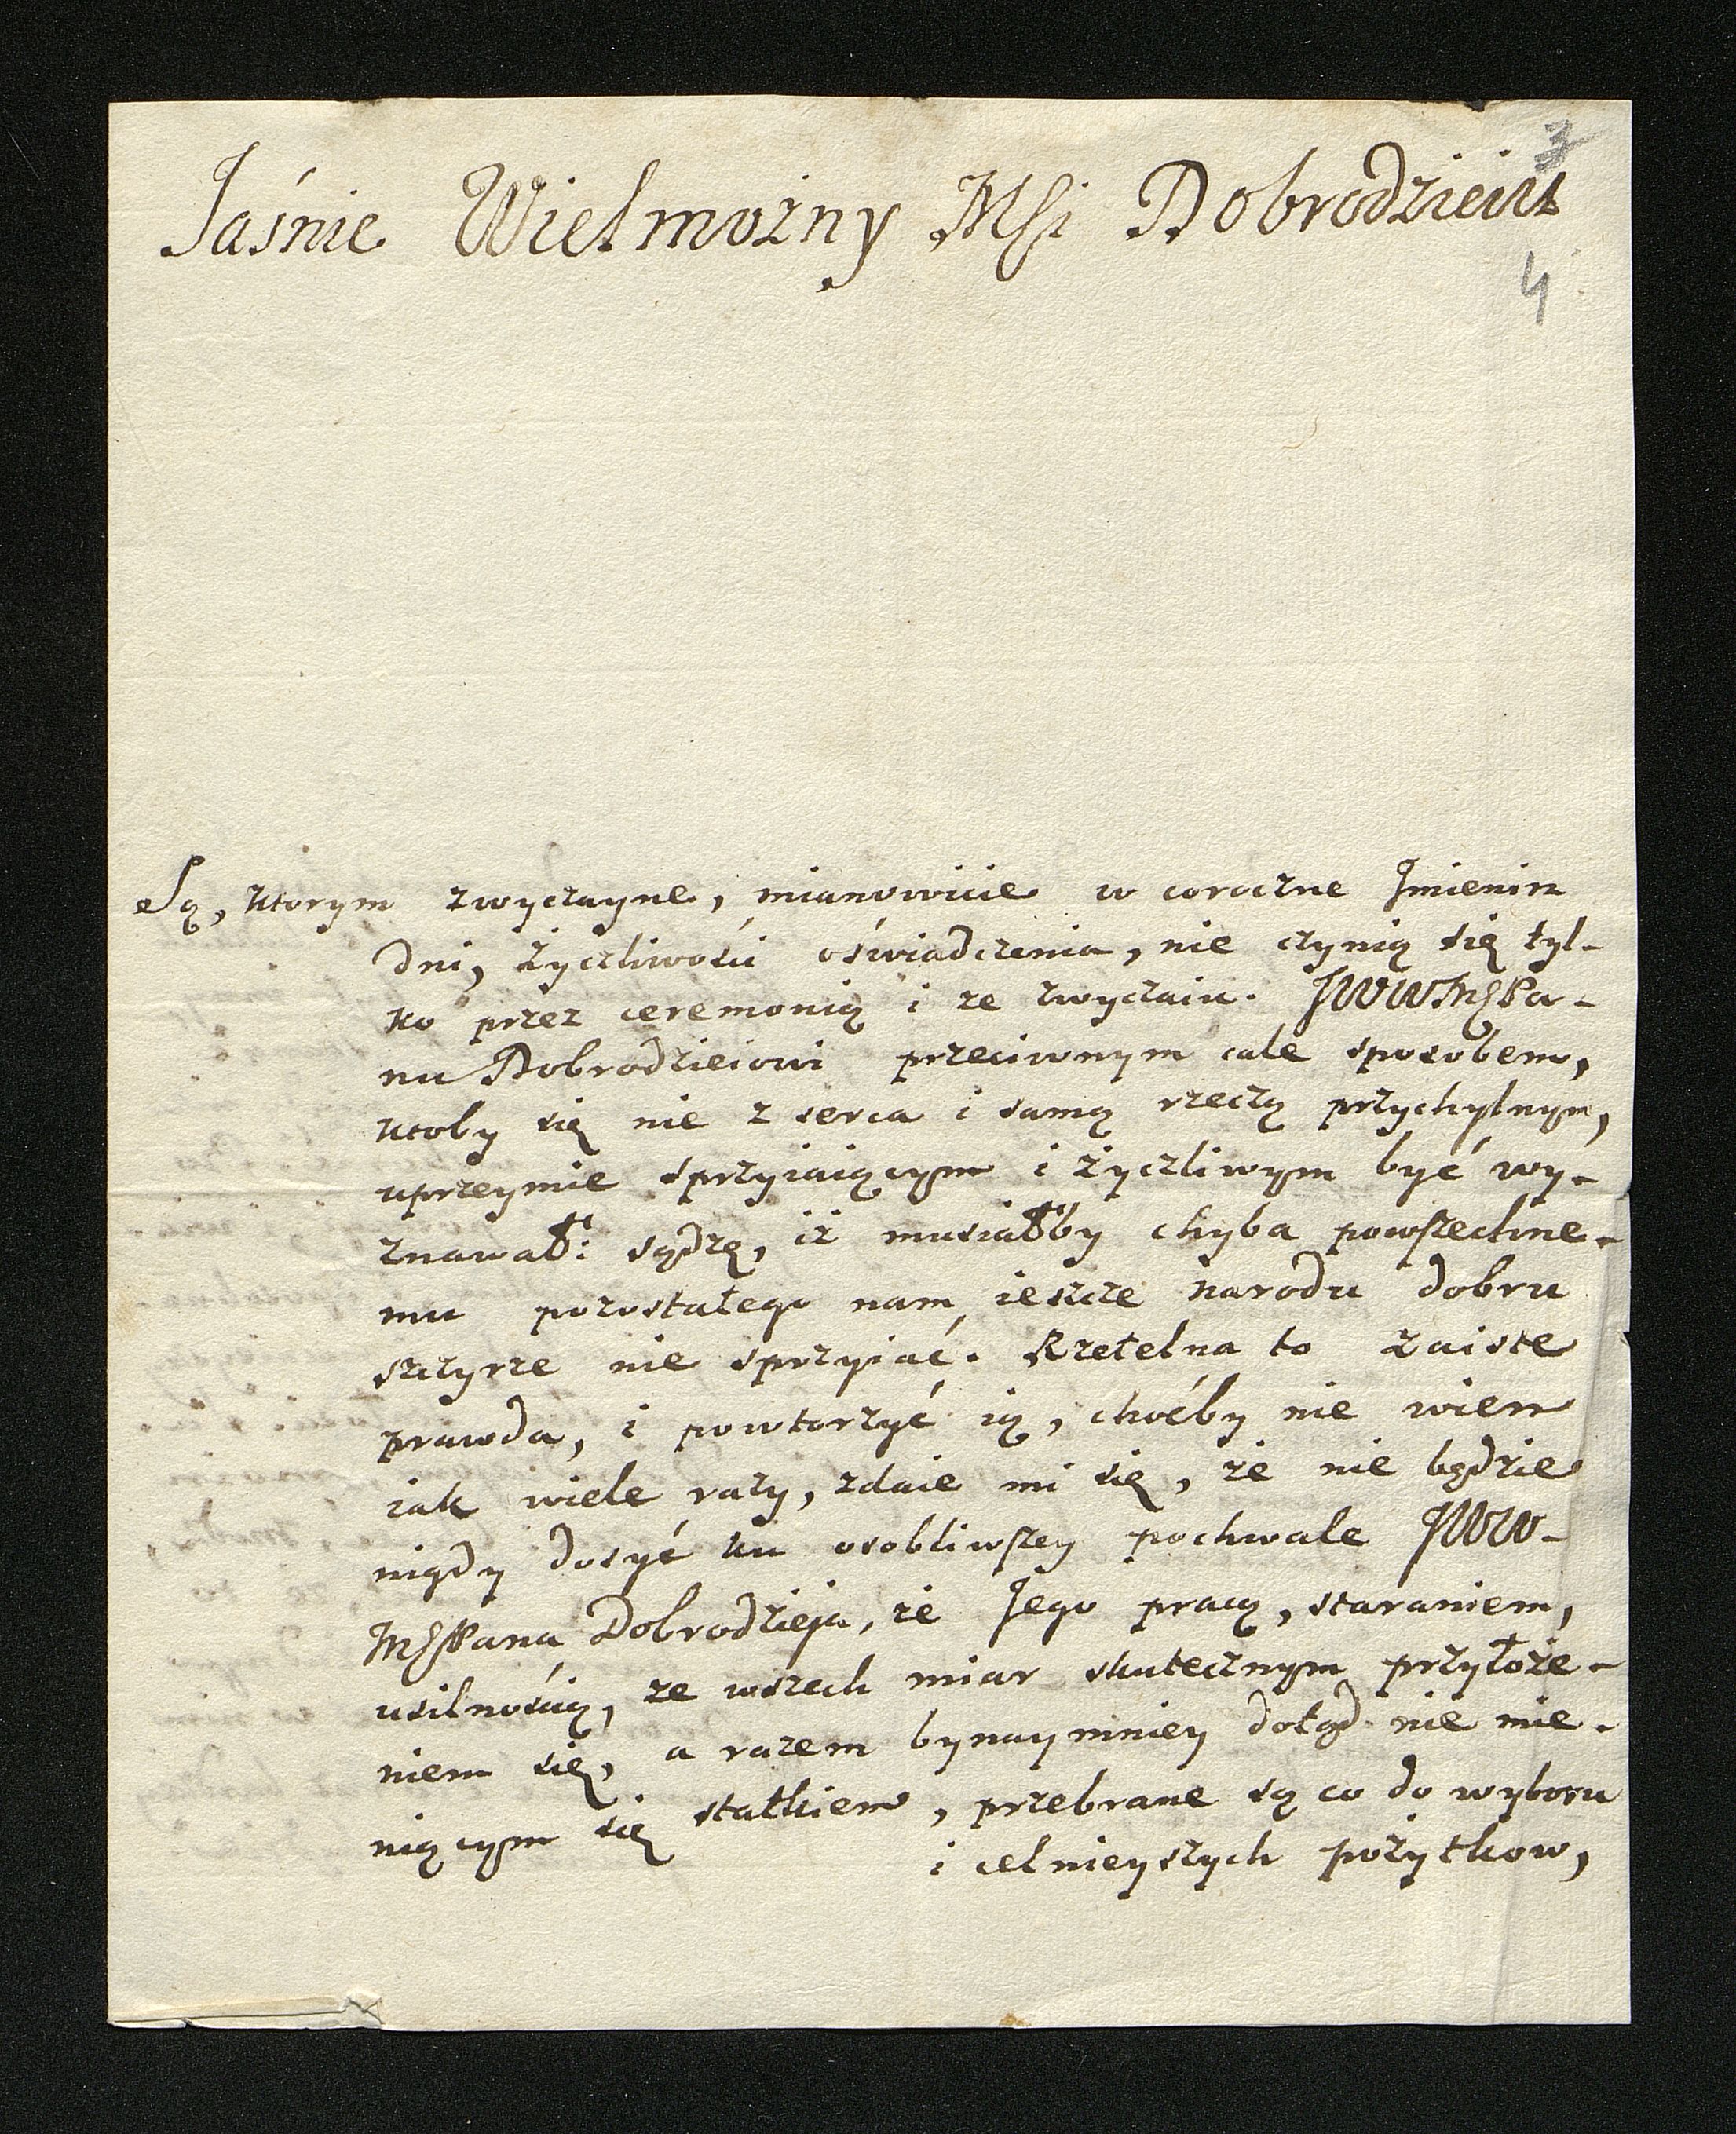 3
Jaśnie Wielmożny MSi Dobrodzieiu
4
Są, ktorym zwyczayne, mianowicie w coroczne Jmienin
dni, życzliwości oświadczenia, nie czynią się tyl-
ko przez ceremonią i ze zwyczaiu. JWWMSPa-
nu Dobrodzieiowi przeciwnym cale sposobem,
ktoby się nie z serca i samą rzeczą przychylnym,
uprzeymie sprzyiaiącym i życzliwym być wy-
znawał: sądzę, iż musiałby chyba powszechne-
mu pozostałego nam ieszcze narodu dobru
szczyrze nie sprzyiać. Rzetelna to zaiste
prawda, i powtorzyć ią, choćby nie wiem
iak wiele razy, zdaie mi się, że nie będzie
nigdy dosyć ku osobliwszey pochwale JWW-
MSPana Dobrodzieja, że Jego pracą, staraniem,
usilnością, ze wszech miar skutecznym przyłoże-
niem się, a razem bynaymniey dotąd nie mie-
niącym się statkiem, przebrane są co do wyboru
i celnieyszych pożytkow,